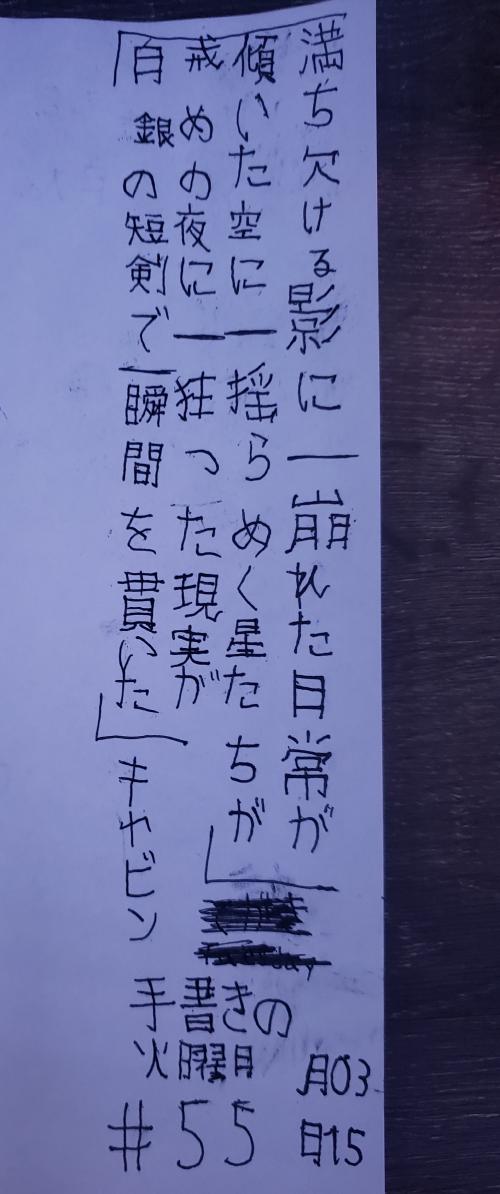 満ち欠ける影に—崩れた日常が
傾いた空に—揺らめく星たちが」
戒めの夜に—狂った現実が
「白銀の短剣で—瞬間を貫いた」キャビン
手書きの
火曜日
#55
月03
日15